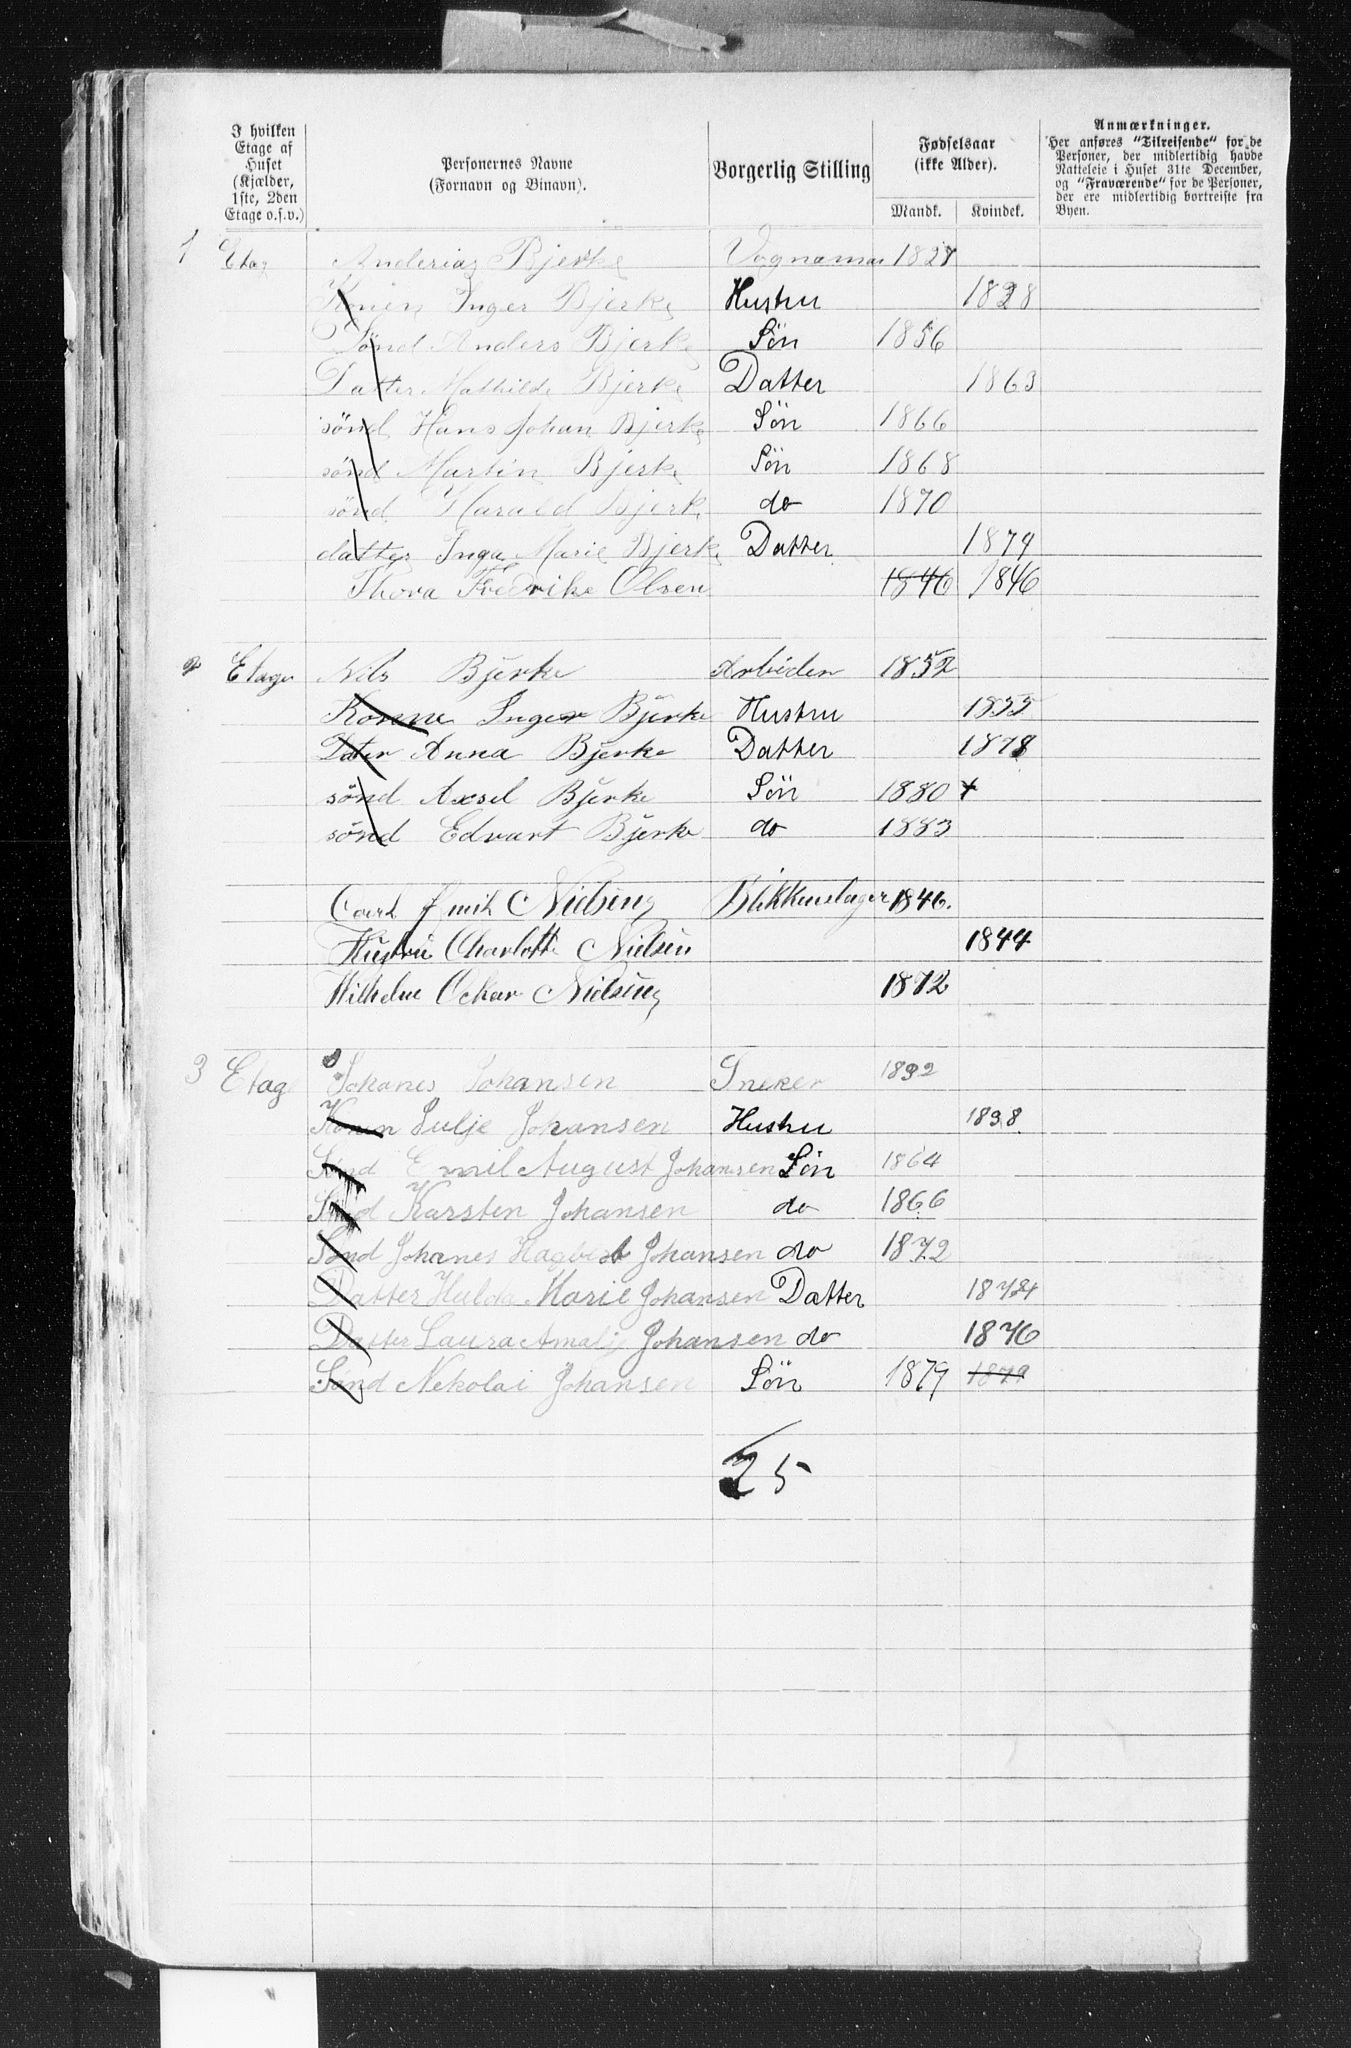 I hvilken Etage af Huset (Kjælder, 1ste, 2den Etage o.s.v.)
Personernes Navne (Fornavn og Binavn).
Borgerlig Stilling
Fødselsaar (ikke Alder).
Mandk. Kvindek.
Anmærkninger.
Her anføres "Tilreisende" for de Personer, der midlertidig havde Natteleie i Huset 31te December, og "Fraværende" for de Personer, der ere midlertidig bortreiste fra Byen.
1 Etag Anderias Bjerke Vognaman 1828
Konen Inger Bjerke Hustru 1828
Sønd Anders Bjerke Søn 1856
Datter Mathilde Bjerke Datter 1863
sönd Hans Johan Bjerke Søn 1866
sönd Martin Bjerke Søn 1868
sönd Harald Bjerke do 1870
datter Inga Marie Bjerke Datter 1874
Thora Fredrike Olsen 1846 1846
2 Etage Nils Bjerke Arbiden 1852
Konne Inger Bjerke Hustru 1855
Dater Anna Bjerke Datter 1878
sönd Axsel Bjerke Søn 1880
sönd Edvart Bjerke do 1883
Carl Emil Nielsen Blikkenslager 1846.
Hustru Charlotte Nielsen 1844
Wilhelm Ockar Nielsen 1872
3 Etag Johanes Johansen Sneker 1832
Konen Julje Johansen Hustru 1838
Sönd Emil August Johansen Søn 1864
Sönd Karsten Johansen do 1866
Sönd Johanes Hagbert Johansen do 1872
Datter Hulda Marie Johansen Datter 1874
Datter Laura Amalie Johansen do 1876
Sönd Nekolai Johansen Søn 1879 1879
25